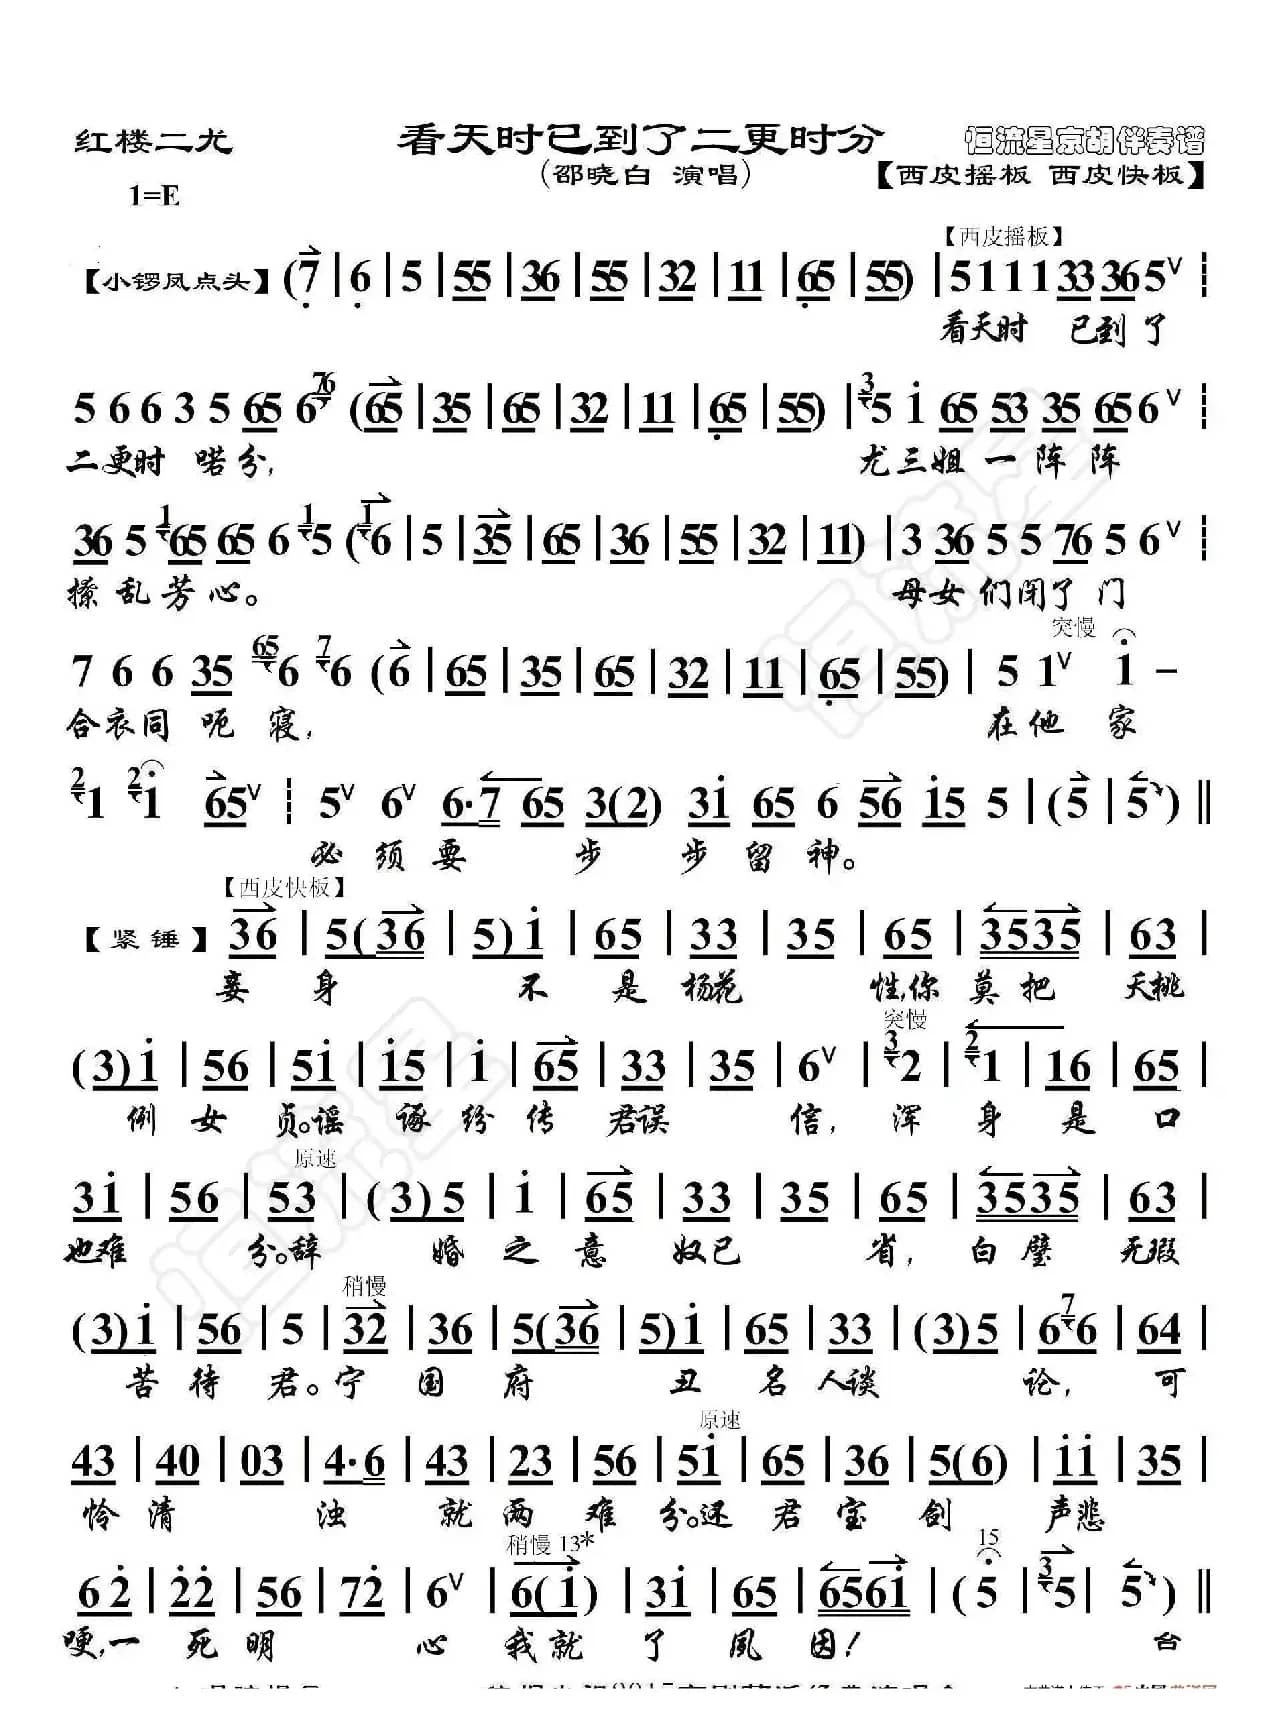 红楼二尤 看天时已到了二更时分 恒流星京胡伴奏谱
(邵晓白 演唱) 【西皮摇板 西皮快板】
1=E
【西皮摇板】
【小锣凤点头】 (7 | 6 | 5 | 55 | 36 | 55 | 32 | 11 | 65 | 55) | 5 1 1 1 33 36 5 ∨
看天时 已到了
5 6 6 3 5 65 6 76 (65 | 35 | 65 | 32 | 11 | 65 | 55) | 3 5 i 65 53 35 65 6 ∨
二更时 喏分, 尤三姐一阵阵
36 5 1 65 65 6 1 5 (1 6 | 5 | 35 | 65 | 36 | 55 | 32 | 11) | 3 36 5 5 76 5 6 ∨
撩乱芳心。 母女们闭了门
突慢
7 6 6 35 65 6 7 6 (6 | 65 | 35 | 65 | 32 | 11 | 65 | 55) | 5 1 ∨ i –
合衣同呃寝, 在他家
2 1 2 i 65 ∨ 5 ∨ 6 ∨ 6·7 65 3(2) 3i 65 6 56 i5 5 | (5 | 5) ‖
必须要步步留神。
【西皮快板】
【紧锤】 36 | 5(36 | 5) i | 65 | 33 | 35 | 65 | 3535 | 63 |
妾身 不是杨花 性,你莫把夭桃
突慢
(3) i | 56 | 5i | i5 | i | 65 | 33 | 35 | 6 ∨ | 3 2 | 2 1 | 16 | 65 |
例女贞。谣诼纷传君误信, 浑身是口
原速
3i | 56 | 53 | (3) 5 | i | 65 | 33 | 35 | 65 | 3535 | 63 |
也难 分。辞 婚之意奴已 省, 白璧无瑕
稍慢
(3) i | 56 | 5 | 32 | 36 | 5(36 | 5) i | 65 | 33 | (3) 5 | 6 7 6 | 64 |
苦待君。宁国府 丑名人谈 论, 可
原速
43 | 40 | 03 | 4·6 | 43 | 23 | 56 | 5i | 65 | 36 | 5(6) | ii | 35 |
怜清 浊 就两难分。还君宝剑 声悲
稍慢 13* 15
6 2 | 2 2 | 56 | 7 2 | 6 ∨ | 6(i) | 3i | 65 | 656i | (5 | 3 5 | 5) ‖
哽,一死明 心我就了夙因! 台